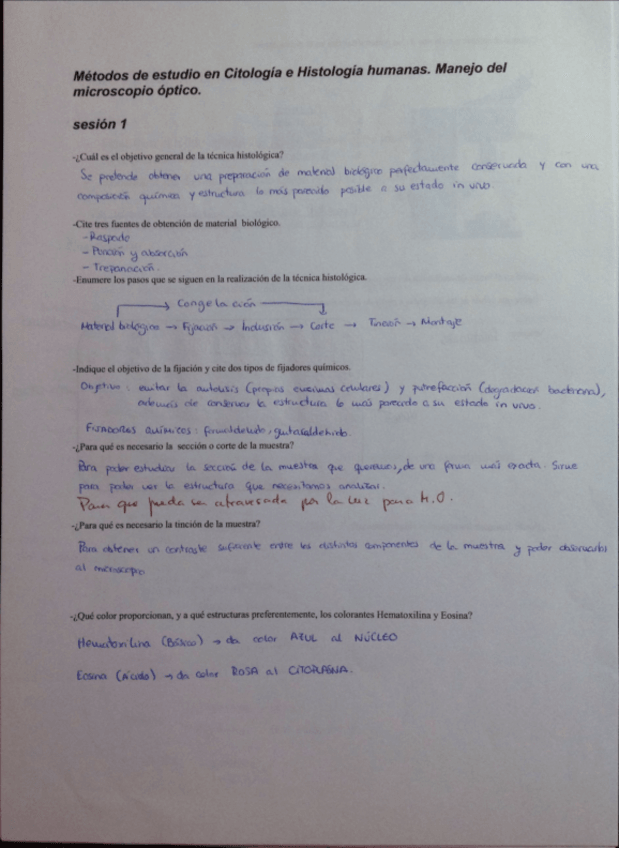 Métodos de estudio en Citología e Histología humanas. Manejo del
microscopio óptico.
sesión 1
-¿Cuál es el objetivo general de la técnica histológica?
Se pretende obtener una preparación de material biológico perfectamente conservada y con una
composición química y estructura lo más parecido posible a su estado in vivo.
-Cite tres fuentes de obtención de material biológico.
- Raspado
- Punción y absorción
- Trepanación.
-Enumere los pasos que se siguen en la realización de la técnica histológica.
Congelación
Material biológico → Fijación → Inclusión → Corte → Tinción → Montaje
-Indique el objetivo de la fijación y cite dos tipos de fijadores químicos.
Objetivo: evitar la autolisis (propias enzimas celulares) y putrefacción (degradación bacteriana),
además de conservar la estructura lo más parecido a su estado in vivo.
FIJADORES QUÍMICOS: formaldehido, glutaraldehido.
-¿Para qué es necesario la sección o corte de la muestra?
Para poder estudiar la sección de la muestra que queremos, de una forma más exacta. Sirve
para poder ver la estructura que necesitamos analizar.
Para que pueda ser atravesada por la luz para M.O.
-¿Para qué es necesario la tinción de la muestra?
Para obtener un contraste suficiente entre los distintos componentes de la muestra y poder observarlos
al microscopio
-¿Qué color proporcionan, y a qué estructuras preferentemente, los colorantes Hematoxilina y Eosina?
Hematoxilina (Básico) → da color AZUL al NÚCLEO
Eosina (Ácido) → da color ROSA al CITOPLASMA.